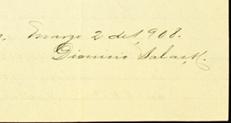 Marzo 2 del, 908.
Dionicio Salas M.